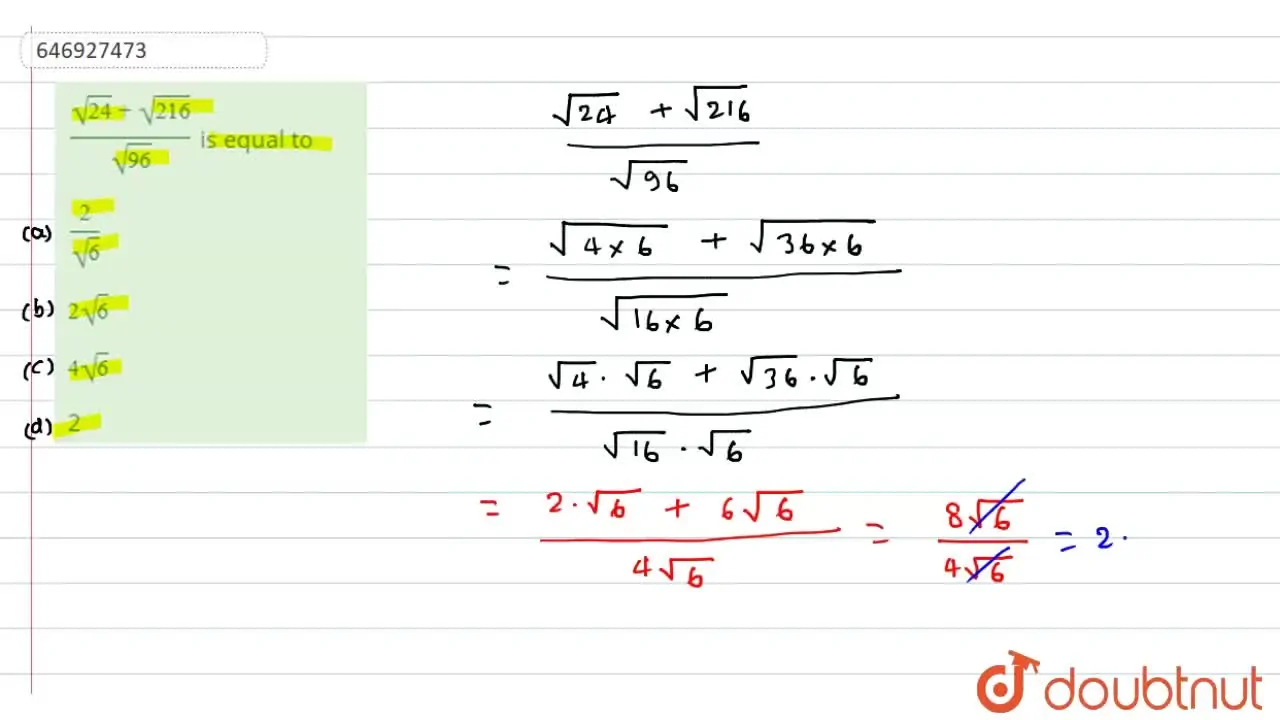 646927473
(√24 + √216) / √96 is equal to
(a) 2/√6
(b) 2√6
(c) 4√6
(d) 2
(√24 + √216) / √96
= (√4×6 + √36×6) / √16×6
= (√4 · √6 + √36 · √6) / (√16 · √6)
= (2·√6 + 6√6) / 4√6 = 8√6 / 4√6 = 2.
doubtnut